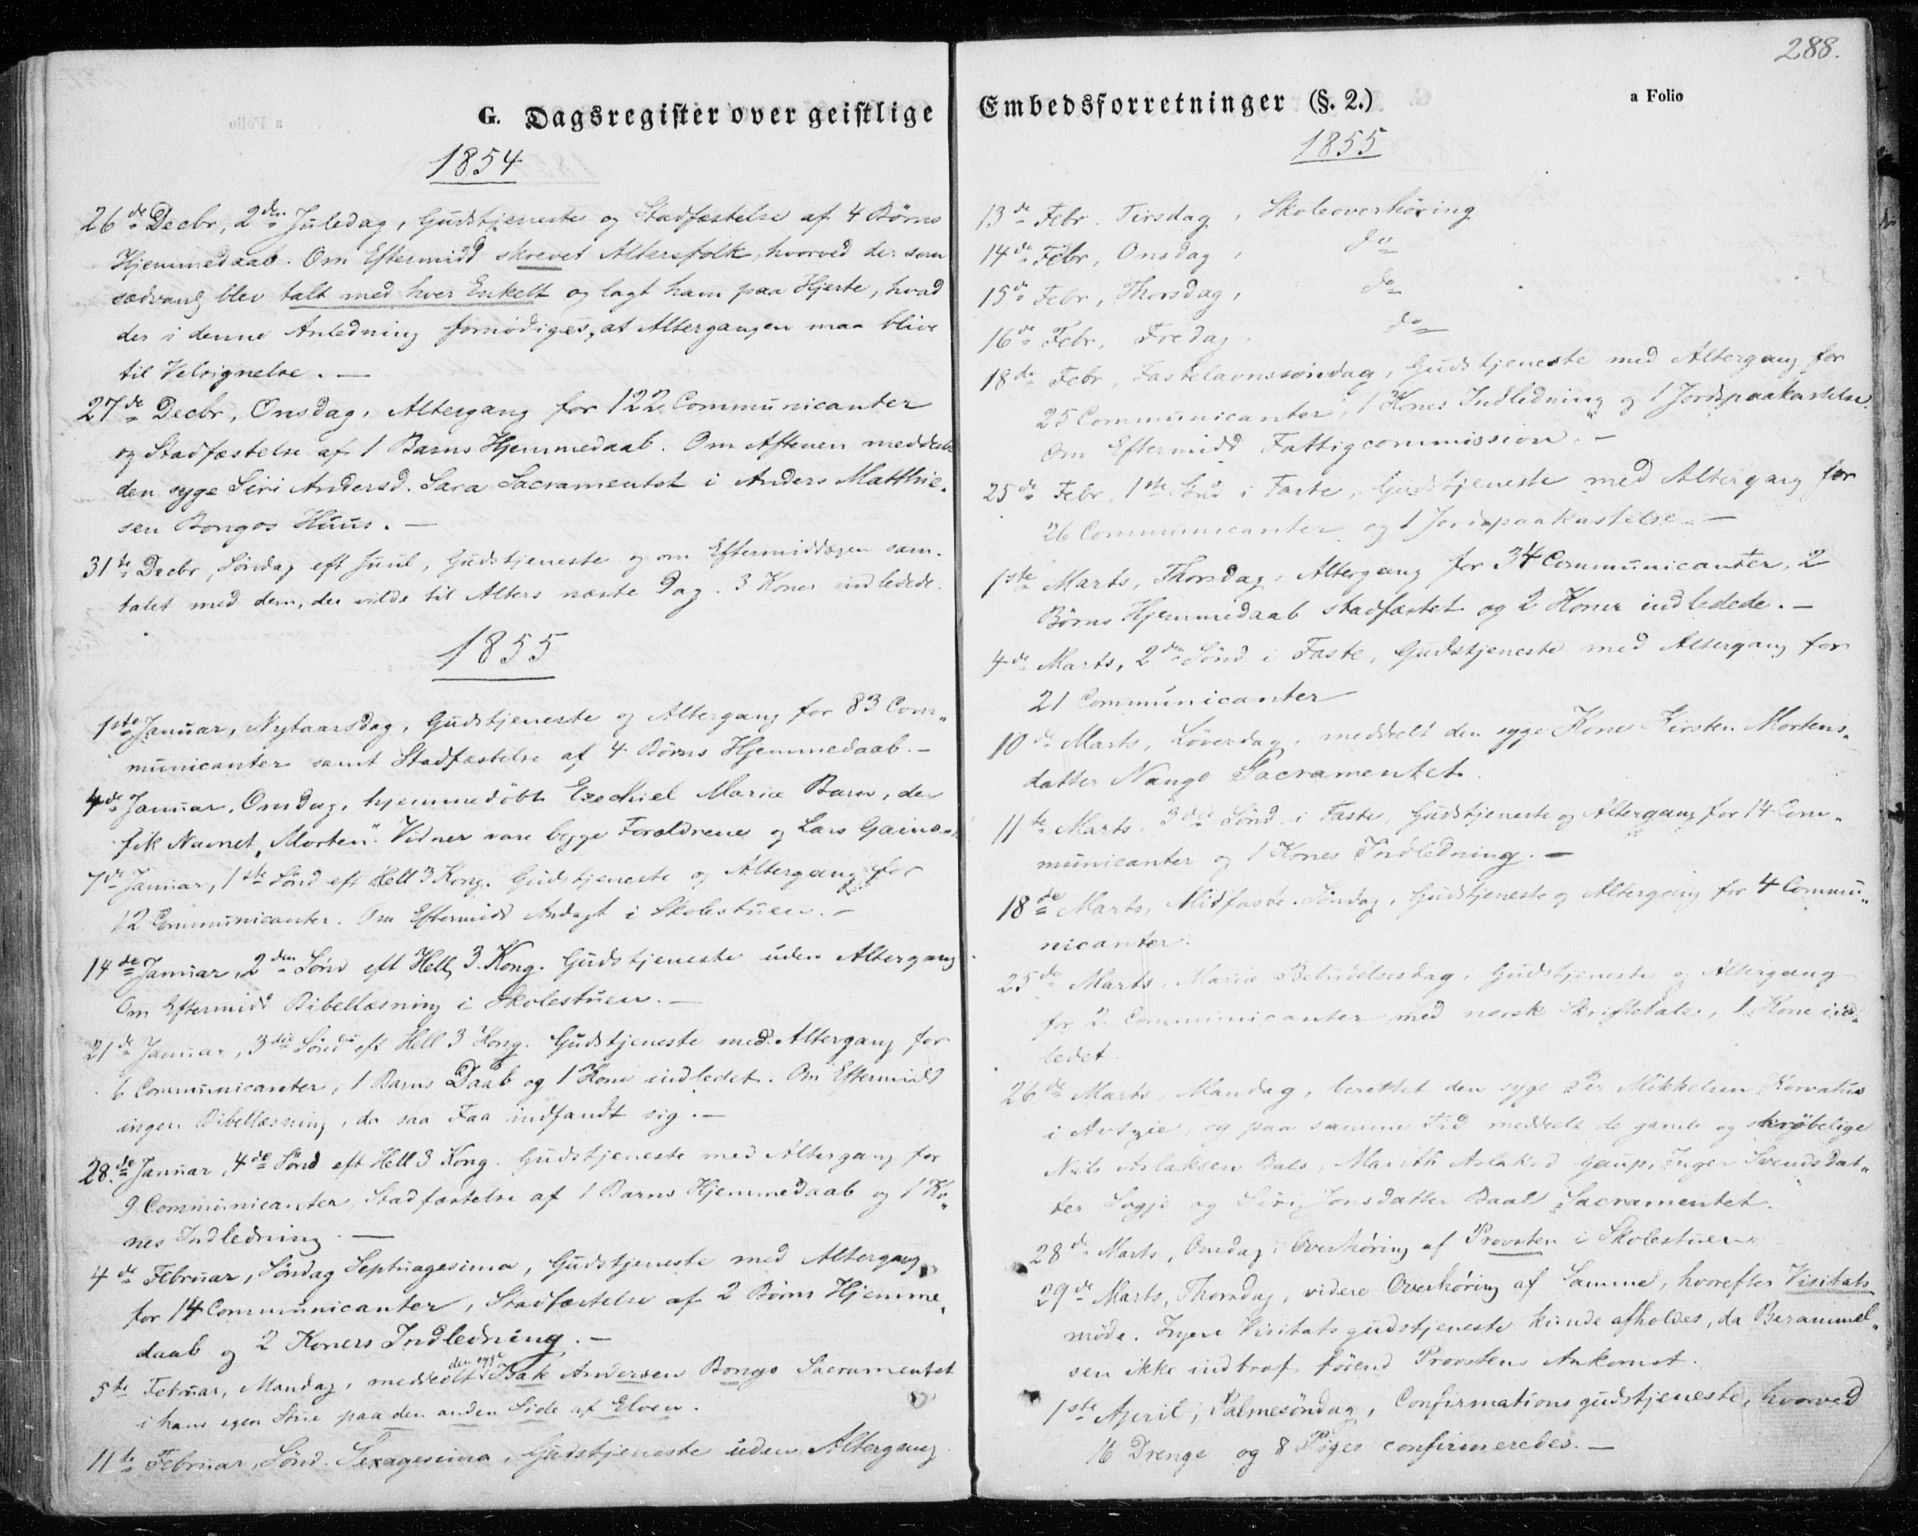 G. Dagsregister over geistlige
1854
26de Decbr, 2den Juledag, Gudstjeneste og Stadfæstelse af 4 Børns
Hjemmedaab. Om Eftermidd skrevet Altersfolk, hvorved der som
sædvanlg blev talt med hver Enkelt og lagt ham paa Hjerte, hvad
der i denne Anledning fornødiges, at Altergangen maa blive
til Velsignelse. —
27de Decbr, Onsdag, Altergang for 122 Communicanter
og Stadfæstelse af 1 Barns Hjemmedaab. Om Aftenen meddeelt
den syge Siri Andersd. Sara Sacramentet i Anders Matthie-
sen Bongos Huus. —
31te Decbr, Søndag eft Juul, Gudstjeneste og om Eftermiddagen sam-
talet med dem, der vilde til Alters næste Dag. 3 Koner indledede.
1855
1ste Januar, Nytaarsdag, Gudstjeneste og Altergang for 83 Com-
municanter samt Stadfæstelse af 4 Børns Hjemmedaab. —
4de Januar, Onsdag, hjemmedøbt Ezechiel Mariæ Barn, der
fik Navnet "Morten". Vidner vare begge Forældrene og Lars Gaino.
7de Januar, 1ste Sønd eft Hell 3 Kong. Gudstjeneste og Altergang for
12 Communicanter. Om Eftermidd Andagt i Skolestuen. —
14de Januar, 2den Sønd eft Hell, 3. Kong. Gudstjeneste uden Altergang
Om Eftermidd Bibellæsning i Skolestuen. —
21de Januar, 3die Sønd eft Hell 3 Kong. Gudstjeneste med Altergang for
6 Communicanter, 1 Barns Daab og 1 Kone indledet. Om Eftermidd
ingen Bibellæsning, da saa Faa indfandt sig. —
28de Januar, 4de Sønd eft Hell 3 Kong. Gudstjeneste med Altergang for
9 Communicanter, Stadfæstelse af 1 Barns Hjemmedaab og 1 Ko-
nes Indledning. —
4de Februar, Søndag Septuagesima, Gudstjeneste med Altergang
for 14 Communicanter, Stadfæstelse af 2 Børns Hjemme-
daab og 2 Koners Indledning. —
5te Februar, Mandag, meddeelt den syge Isak Andersen Bongo Sacramentet
i hans egen Stue paa den anden Side af Elven.
11te Februar, Sønd. Sexagesima, Gudstjeneste uden Altergang
288.
Embedsforretninger (§. 2.)
a Folio
1855
13de Febr. Tirsdag, Skoleoverhøring
14de Febr, Onsdag, do
15de Febr, Thorsdag, do
16de Febr, Fredag, do
18de Febr, Fastelavnssøndag, Gudstjeneste med Altergang for
25 Communicanter, 1 Kones Indledning og 1 Jordspaakastelse.
Om Eftermidd Fattigcommission. —
25de Febr, 1ste Sønd i Faste, Gudstjeneste med Altergang for
26 Communicanter og 1 Jordspaakastelse. —
1ste Marts, Thorsdag, Altergang for 34 Communicanter, 2
Børns Hjemmedaab stadfæstet og 2 Koner indledede. —
4de Marts, 2den Sønd i Faste, Gudstjeneste med Altergang for
21 Communicanter
10de Marts, Løverdag, meddeelt den syge Kone Kirsten Mortens-
datter Nango Sacramentet.
11te Marts, 3die Sønd i Faste, Gudstjeneste og Altergang for 14 Com-
municanter og 1 Kones Indledning. —
18de Marts, Midfaste-Søndag, Gudstjeneste og Altergang for 4 Commu-
nicanter.
25de Marts, Mariæ Bebudelsesdag, Gudstjeneste og Altergang
for 2 Communicanter med norsk Skriftetale, 1 Kone ind-
ledet.
26de Marts, Mandag, berettet den syge Per Mikkelsen Korvatus
i Avtzie, og paa samme Tid meddeelt de gamle og skrøbelige
Nils Aslaksen Bals, Marith Aslaksd Gaup, Inger Svendsdat-
ter Sogje og Siri Jonsdatter Baal Sacramentet.
28de Marts, Onsdag, Overhøring af Provsten i Skolestuen.
29de Marts, Thorsdag, videre Overhøring af Samme, hvorefter Visitats
møde. Ingen Visitatsgudstjeneste kunde afholdes, da Berammel-
sen ikke indtraf førend Provstens Ankomst.
1ste April, Palmesøndag, Confirmationsgudstjeneste, hvorved
16 Drenge og 8 Piger confirmeredes. —